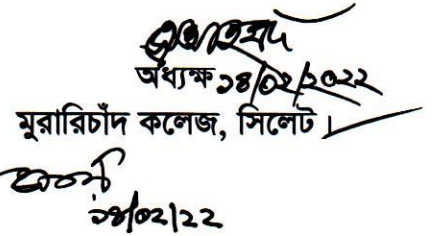 অধ্যক্ষ ১৪/০২/২০২২
মুরারিচাঁদ কলেজ, সিলেট।
১৪/০২/২২